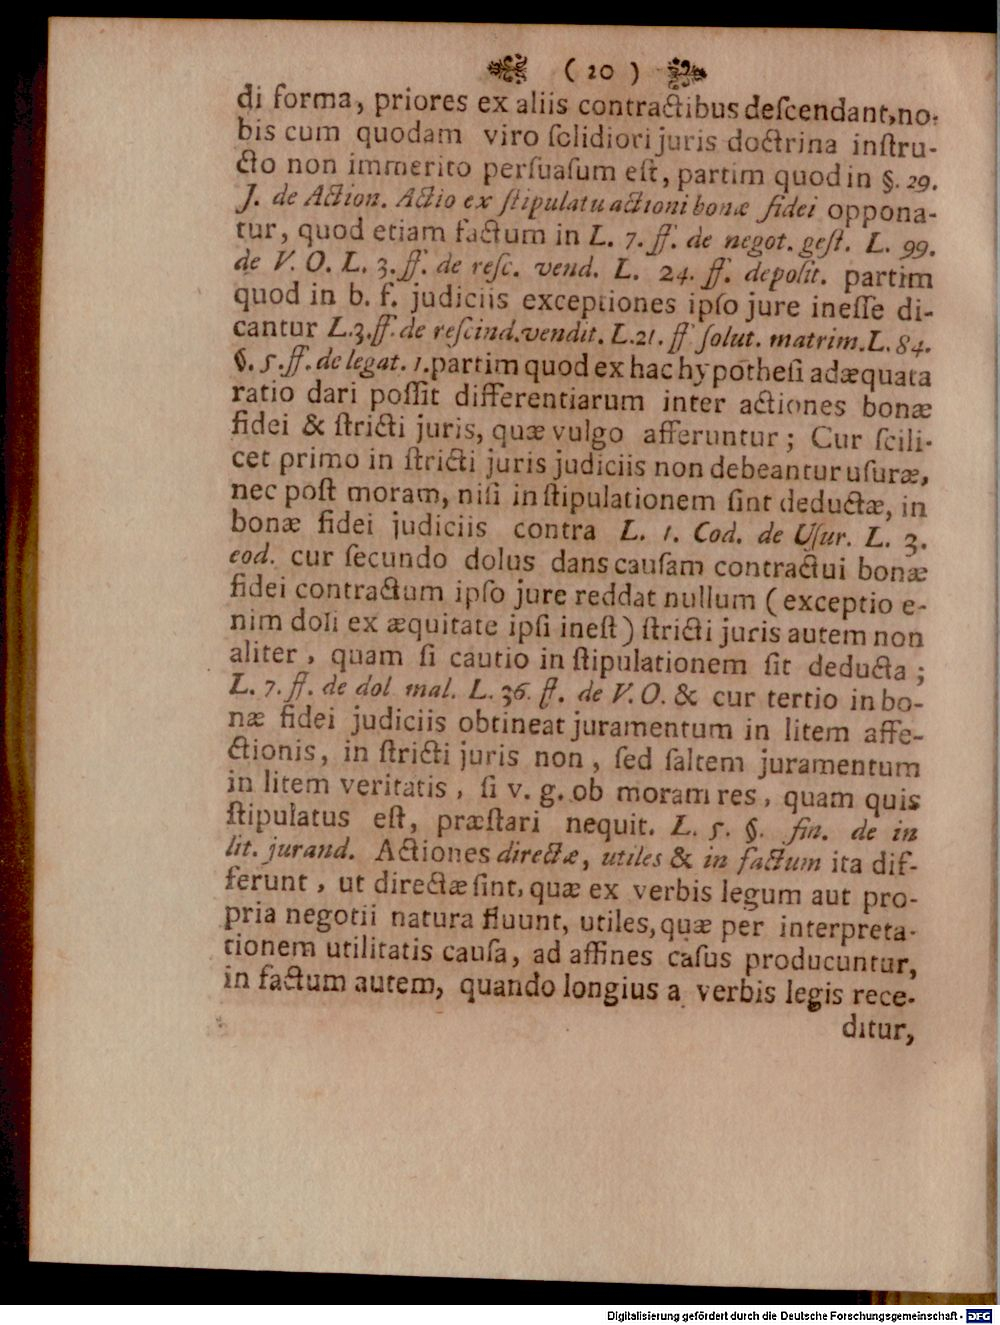 ( 20 )
di forma, priores ex aliis contractibus deſcendant, no-
bis cum quodam viro ſolidiori juris doctrina inſtru-
cto non immerito perſuaſum eſt, partim quod in §. 29.
J. de Action. Actio ex ſtipulatu actioni bonæ fidei oppona-
tur, quod etiam factum in L. 7. ff. de negot. geſt. L. 99.
de V. O. L. 3. ff. de reſc. vend. L. 24. ff. depoſit. partim
quod in b. f. judiciis exceptiones ipſo jure ineſſe di-
cantur L. 3. ff. de reſcind. vendit. L. 21. ff ſolut. matrim. L. 84.
§. 5. ff. de legat. 1. partim quod ex hac hypotheſi adæquata
ratio dari poſſit differentiarum inter actiones bonæ
fidei & ſtricti juris, quæ vulgo afferuntur; Cur ſcili-
cet primo in ſtricti juris judiciis non debeantur uſuræ,
nec poſt moram, niſi in ſtipulationem ſint deductæ, in
bonæ fidei judiciis contra L. 1. Cod. de Uſur. L. 3.
eod. cur ſecundo dolus dans cauſam contractui bonæ
fidei contractum ipſo jure reddat nullum (exceptio e-
nim doli ex æquitate ipſi ineſt) ſtricti juris autem non
aliter, quam ſi cautio in ſtipulationem ſit deducta;
L. 7. ff. de dol mal. L. 36. ff. de V. O. & cur tertio in bo-
næ fidei judiciis obtineat juramentum in litem affe-
ctionis, in ſtricti juris non, ſed ſaltem juramentum
in litem veritatis, ſi v. g. ob moram res, quam quis
ſtipulatus eſt, præſtari nequit. L. 5. §. fin. de in
lit. jurand. Actiones directæ, utiles & in factum ita dif-
ferunt, ut directæ ſint, quæ ex verbis legum aut pro-
pria negotii natura fluunt, utiles, quæ per interpreta-
tionem utilitatis cauſa, ad affines caſus producuntur,
in factum autem, quando longius a verbis legis rece-
ditur,
Digitalisierung gefördert durch die Deutsche Forschungsgemeinschaft - DFG